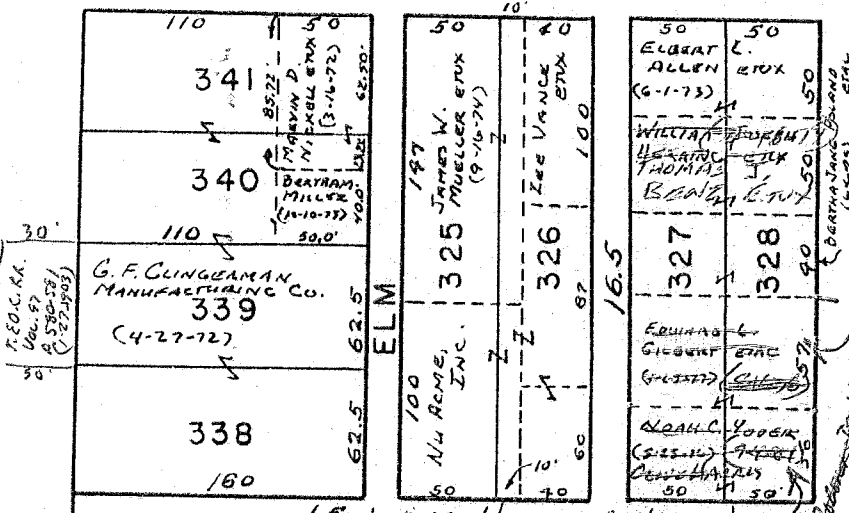 110
50
341
85.72'
MARVIN D.
NICKELL ETUX
(3-16-72)
62.50'
340
BERTRAM
MILLER
40.0'
50.0'
110
30'
T.&O.C. R.R.
VOL. 97
P. 580-581
(1-27-1903)
50'
G. F. CLINGERMAN
MANUFACTURING CO.
339
(4-27-72)
62.5
338
62.5
160
ELM
10'
50
40
147
JAMES W.
MUELLER ETUX
(9-16-74)
325
LEE VANCE
ETUX
100
326
87
100
NU ACME,
INC.
10'
60
50
40
16.5
50
50
ELBERT L.
ALLEN ETUX
(6-1-73)
50
WILLIAM
THOMAS J.
BENZ ETUX
50
327
328
40
BERTHA JANE BOLAND
ETAL
EDWARD L.
GILBERT ETAL
57
NOAH C. YODER
(5-25-16)
CLINE HARRIS
56
50
50'